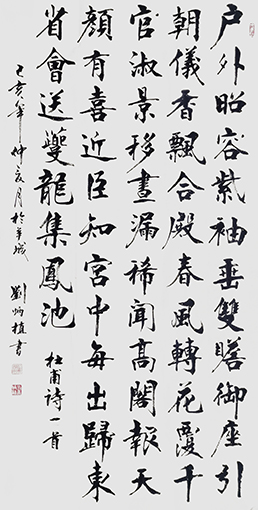 户外昭容紫袖垂雙瞻御座引
朝儀香飄合殿春風轉花覆千
官淑景移晝漏稀聞高閣報天
顏有喜近臣知宮中每出歸東
省會送夔龍集鳳池 杜甫詩一首
己亥年仲亥月於羊城 劉炳植書